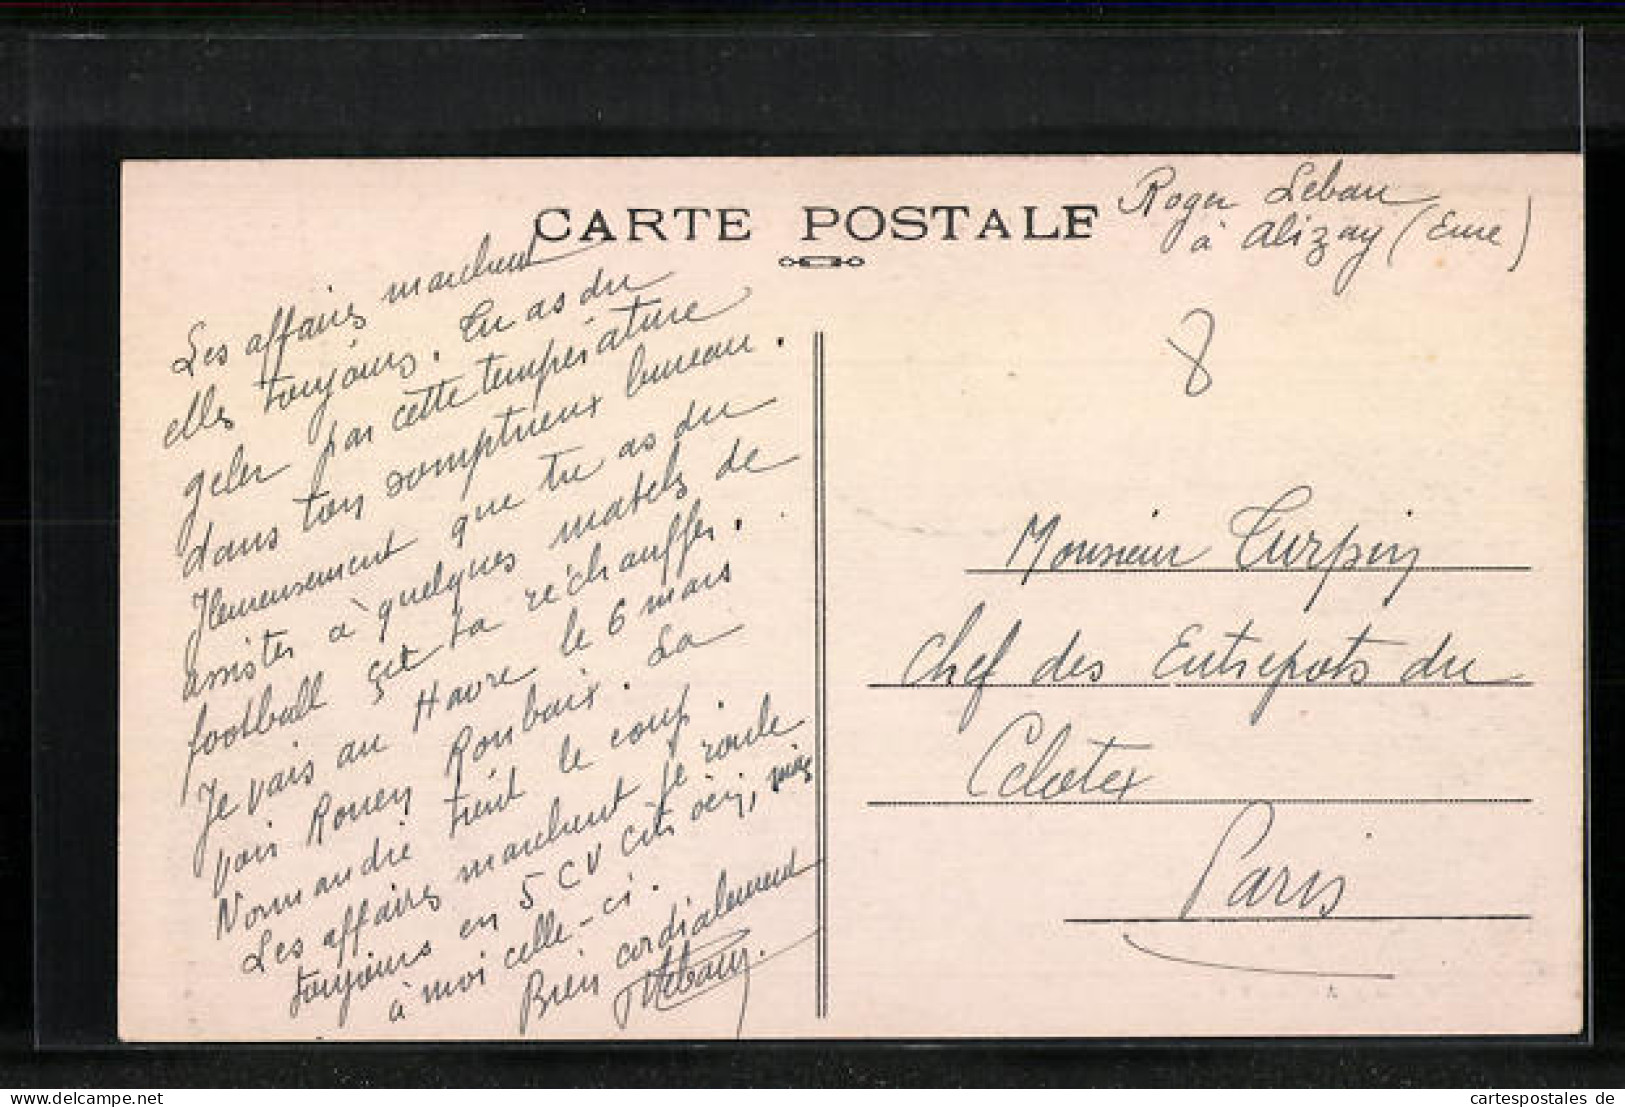 CARTE POSTALE
Roger Lebau
à Alizay (Eure)
8
Les affaires marchent
elles toujours. Tu as du
geler par cette température
dans ton somptueux bureau.
Heureusement que tu as du
assister à quelques match de
football ça ta réchauffer.
Je vais au Havre le 6 mars
voir Rouen Roubaix. La
Normandie tient le coup.
Les affaires marchent je roule
toujours en 5 CV Citroën, mais
à moi celle-ci.
Bien cordialement
Monsieur Turpin
Chef des Entrepots du
Celotex
Paris
www.cartespostales.de
cartespostales de